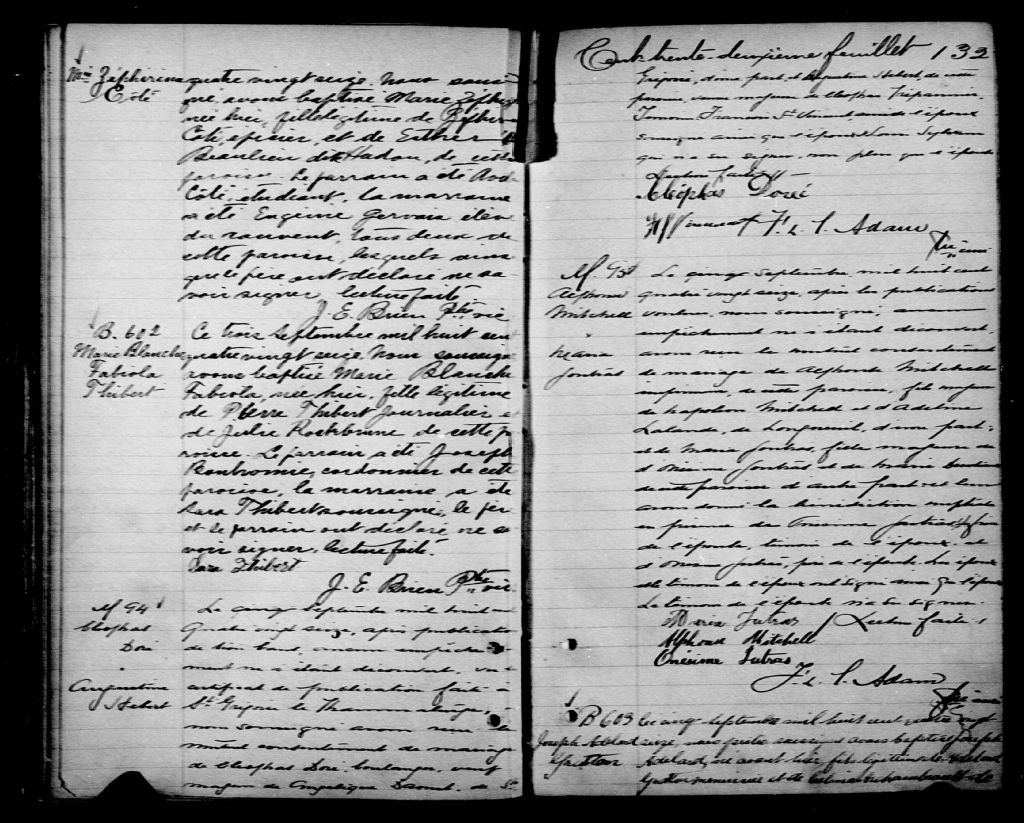 Mie Zéphirina
Côté
quatre vingt seize. Nous sous
gné avons baptisé Marie Zéphir
née hier, fille légitime de Zéphir
Côté, épicier, et de Esther
Beaulieu dit Hudon, de cette
paroisse. Le parrain a été
Côté, étudiant, la marraine
a été Eugénie Gervais élève
du couvent, tous deux de
cette paroisse, lesquels ainsi
que le père ont déclaré ne sa
voir signer, lecture faite
J. E. Brien Ptre vic
B. 602
Marie Blanche
Fabiola
Thibert
Ce trois Septembre mil huit cent
quatre vingt seize. Nous soussigné
avons baptisé Marie Blanche
Fabiola, née hier, fille légitime
de Pierre Thibert Journalier et
de Julie Rochbrune de cette pa
roisse. Le parrain a été Joseph
Bonhomme, cordonnier de cette
paroisse, la marraine a été
Sara Thibert soussignée, le père
et le parrain ont déclaré ne sa
voir signer. lecture faite.
Sara Thibert
J. E. Brien Ptre vic.
M 94
Cleophas
Doré
Augustine
Hebert
Le cinq Septembre mil huit cent
Quatre vingt seize, après publication
de bans, aucun empêche
ment ne s'étant découvert, vu le
certificat de publication faite à
St Grégoire le Thaumaturge,
nous soussigné avons reçu le
mutuel consentement de mariage
de Cleophas Doré, boulanger, veuf
majeur de Angélique Daoust, de St
Cent trente-deuxième feuillet 132
Grégoire, d'une part, et Augustine Hebert, de cette
paroisse, veuve majeure de Cléophas Trépannier.
Témoin François St Vincent ami de l'époux
soussigné ainsi que l'époux Louis Sylvain
qui n'a su signer, non plus que l'épouse
Lecture faite
Cléophas Doré
St Vincent F. L. T. Adam
Ptre curé
M. 95
Alphonse
Mitchell
Maria
Jutras
Le cinq septembre, mil huit cent
quatre vingt seize, après les publications
voulues, nous soussigné, aucun
empêchement ne s'étant découvert,
avons reçu le mutuel consentement
de mariage de Alphonse Mitchell
de cette paroisse, fils majeur
de Napoléon Mitchell et d'Adelina
Lalande, de Longueuil, d'une part
et de Maria Jutras, fille majeure
d'Onésime Jutras et de Marie
de cette paroisse d'autre part et leur
avons donné la bénédiction nuptiale
en présence de Onésime Jutras
de l'épouse, témoin de l'époux, et
d'Onésime Jutras, père de l'épouse. Les époux
et le témoin de l'époux ont signé
Le témoin de l'épouse n'a su signer.
Maria Jutras Lecture faite
Alphonse Mitchell
Onésime Jutras
F. L. T. Adam
Ptre curé
B 603
Joseph Adélard
Le cinq septembre mil huit cent quatre vingt
seize, nous prêtre soussigné avons baptisé Joseph
Adélard, né avant hier, fils légitime de Adélard
menuisier et de